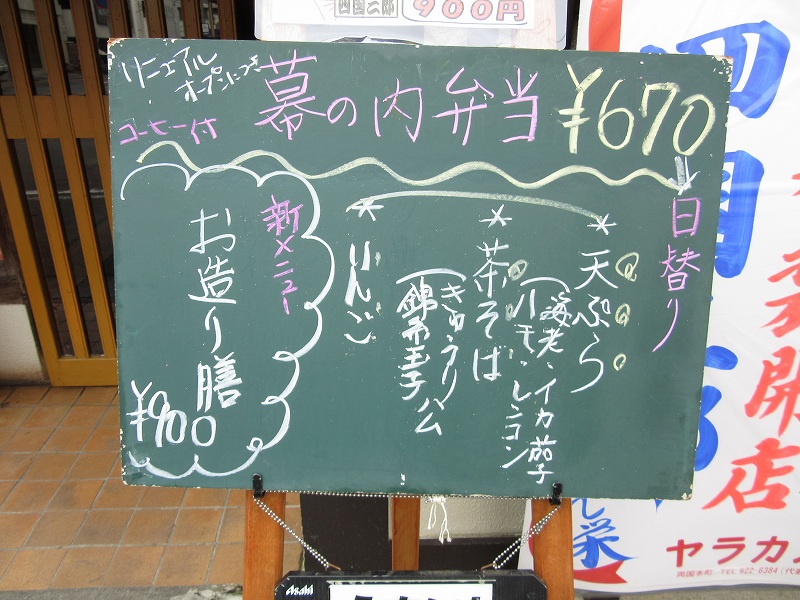 四国三郎 900円
リニューアル
オープンにつき
コーヒー付
幕の内弁当 ¥670
日替り
*天ぷら
(海老、イカ、茄子
レンコン
*茶そば
(きゅうり
錦糸玉子
*りんご
新メニュー
お造り膳
¥900
開店
ヤラカ
両国本町 TEL 622-6384 (代
Asahi